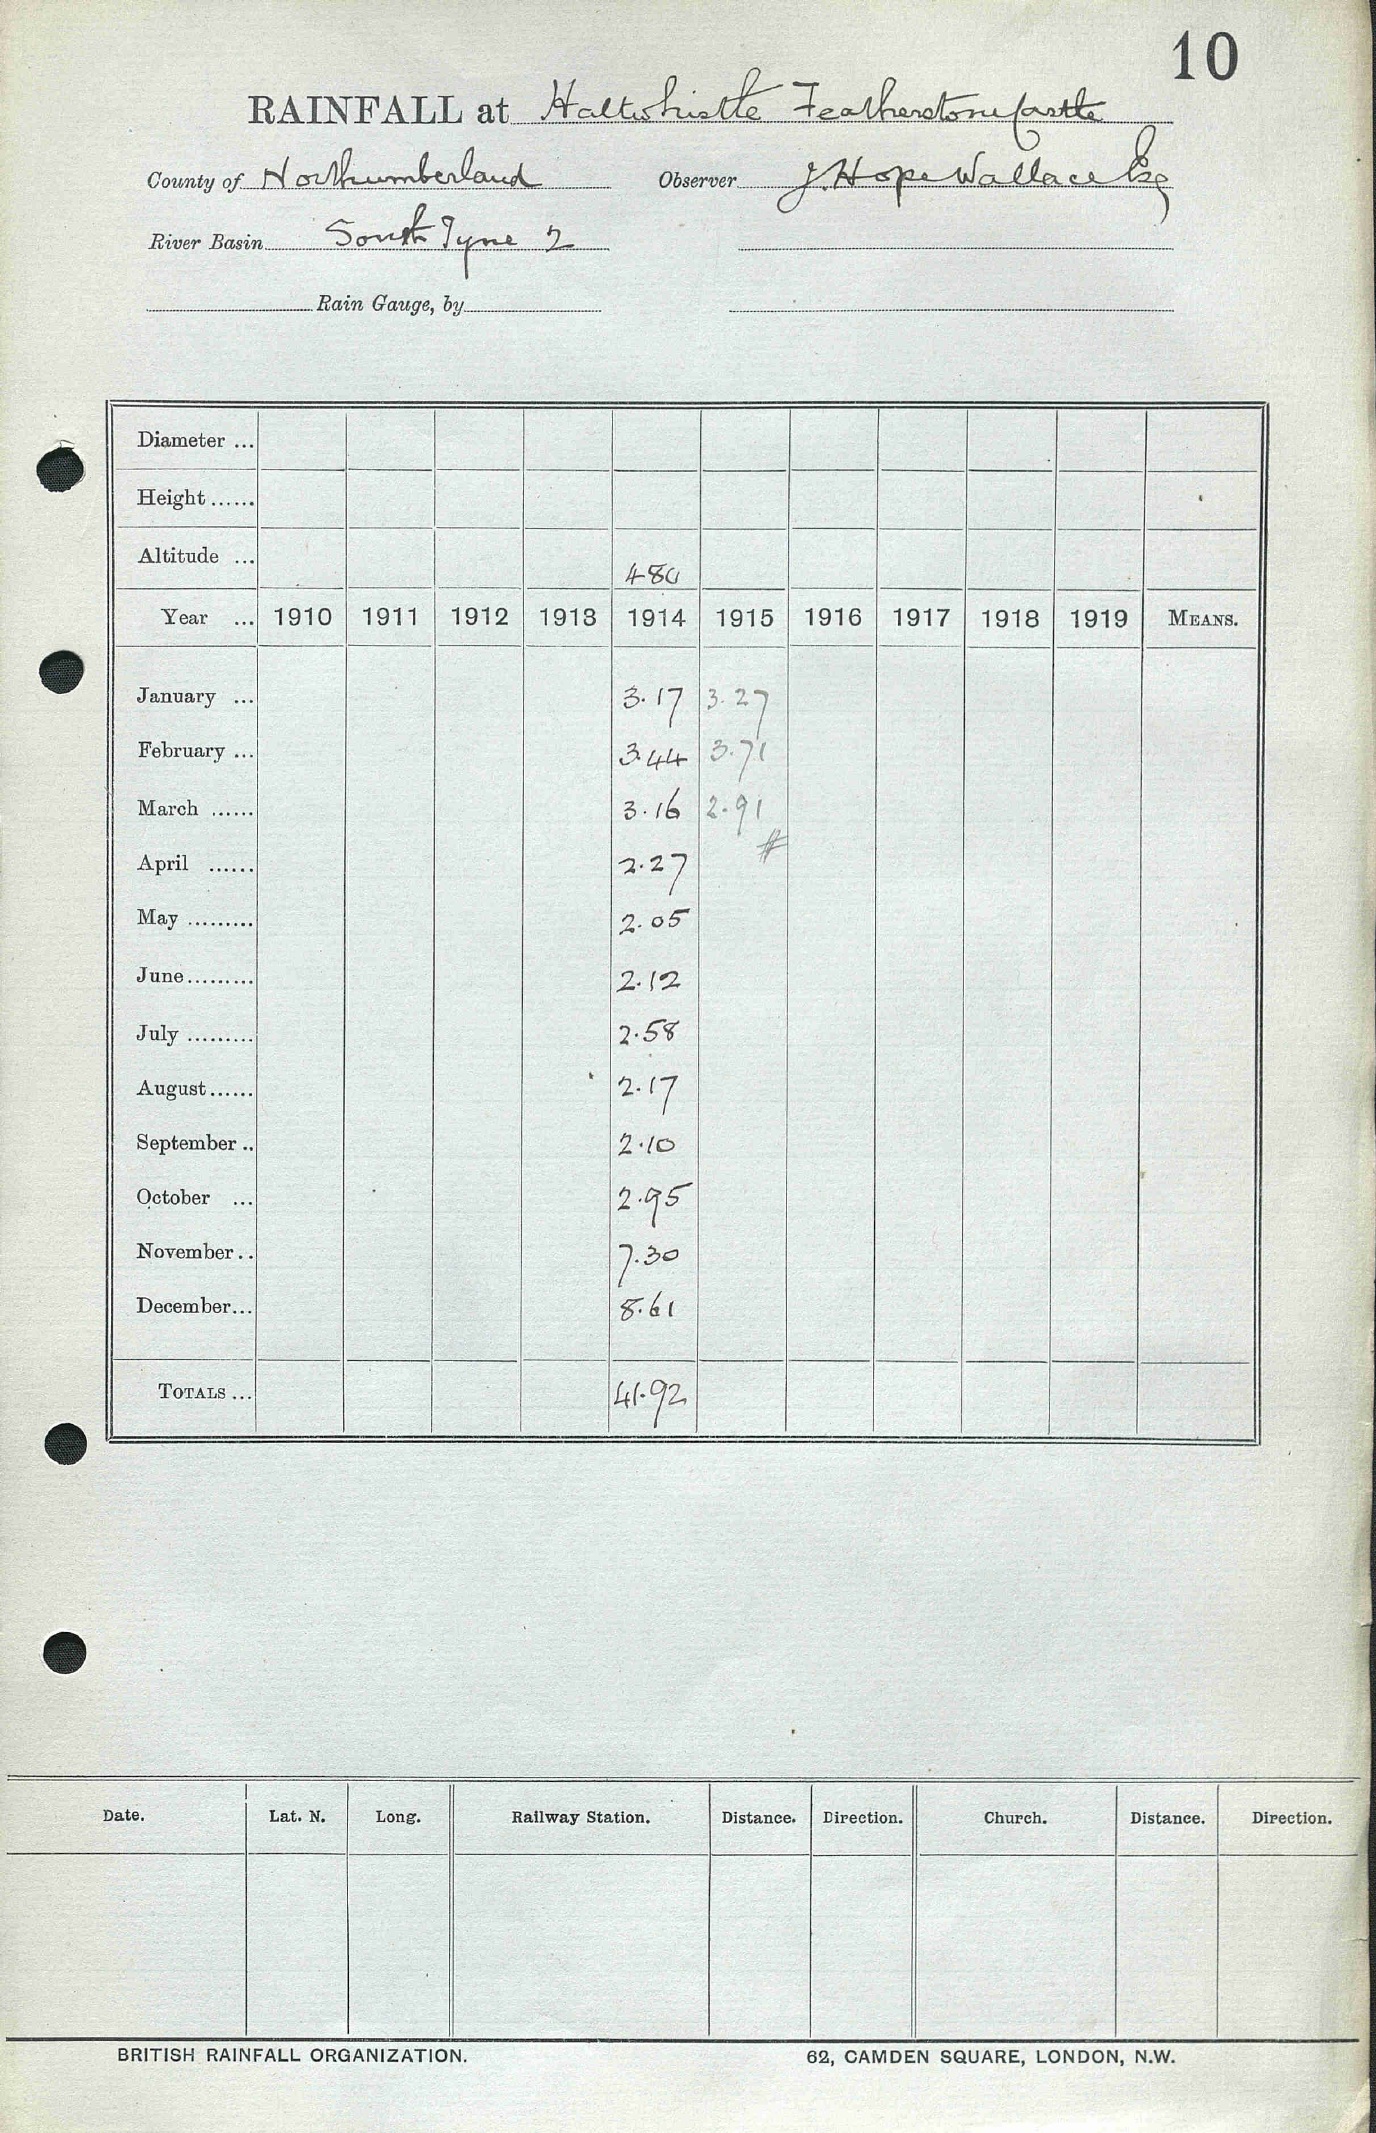 10
RAINFALL at Haltwhistle Featherstone Castle
County of Northumberland Observer J. Hope Wallace Esq
River Basin South Tyne 2
Rain Gauge, by
Diameter ...
Height ......
Altitude ... 480
Year ... 1910 1911 1912 1913 1914 1915 1916 1917 1918 1919 MEANS.
January ... 3.17 3.27
February ... 3.44 3.71
March ...... 3.16 2.91
#
April ...... 2.27
May ......... 2.05
June ......... 2.12
July ......... 2.58
August ...... 2.17
September .. 2.10
October ... 2.95
November .. 7.30
December ... 8.61
TOTALS ... 41.92
Date. Lat. N. Long. Railway Station. Distance. Direction. Church. Distance. Direction.
BRITISH RAINFALL ORGANIZATION. 62, CAMDEN SQUARE, LONDON, N.W.